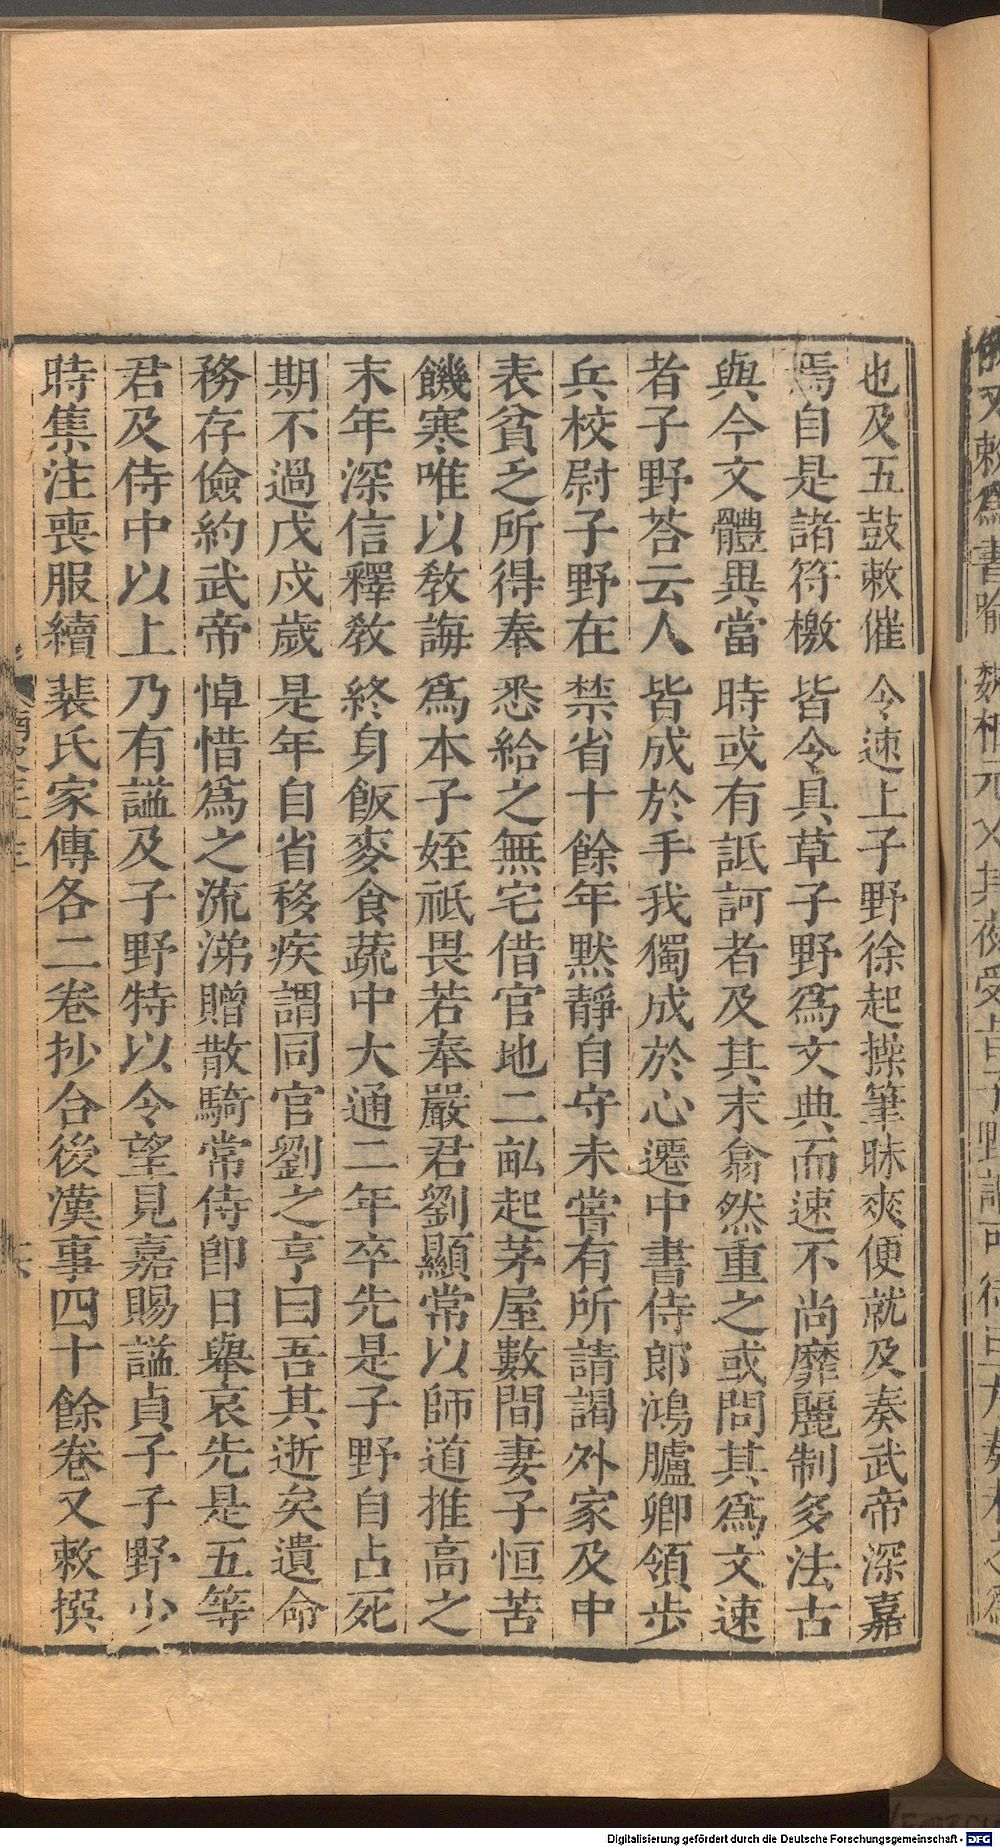 也及五鼓敕催令速上子野徐起操筆昧爽便就及奏武帝深嘉
焉自是諸符檄皆令具草子野爲文典而速不尚靡麗制多法古
與今文體異當時或有詆訶者及其末翕然重之或問其爲文速
者子野荅云人皆成於手我獨成於心遷中書侍郎鴻臚卿領步
兵校尉子野在禁省十餘年默靜自守未嘗有所請謁外家及中
表貧乏所得奉悉給之無宅借官地二畝起茅屋數間妻子恒苦
饑寒唯以敎誨爲本子姪祇畏若奉嚴君劉顯常以師道推高之
末年深信釋敎終身飯麥食蔬中大通二年卒先是子野自占死
期不過戊戌歲是年自省移疾謂同官劉之亨曰吾其逝矣遺命
務存儉約武帝悼惜爲之流涕贈散騎常侍卽日舉哀先是五等
君及侍中以上乃有謚及子野特以令望見嘉賜謚貞子子野少
時集注喪服續裴氏家傳各二卷抄合後漢事四十餘卷又敕撰
Digitalisierung gefördert durch die Deutsche Forschungsgemeinschaft - DFG